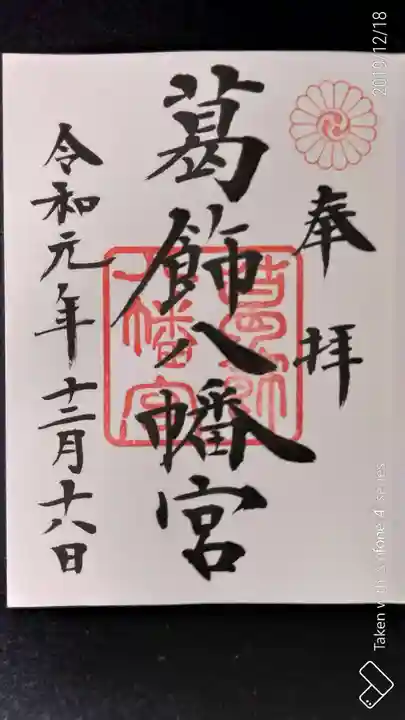 奉拝
葛飾八幡宮
葛飾八幡宮
令和元年十二月十八日
2019/12/18
Taken with Zenfone 4 series